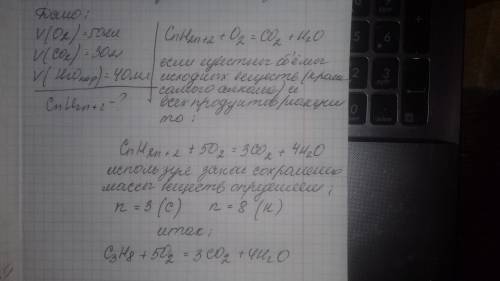 Дано:
V(O2) = 50мл
V(CO2) = 30мл
V(H2Oпар) = 40мл
CnH2n+2 - ?
CnH2n+2 + O2 = CO2 + H2O
если известны объёмы
исходных веществ (кроме
самого алкана) и
всех продуктов реакции
то:
CnH2n+2 + 5O2 = 3CO2 + 4H2O
используя закон сохранения
массы веществ определяем;
n = 3 (C) n = 8 (H)
итак;
C3H8 + 5O2 = 3CO2 + 4H2O